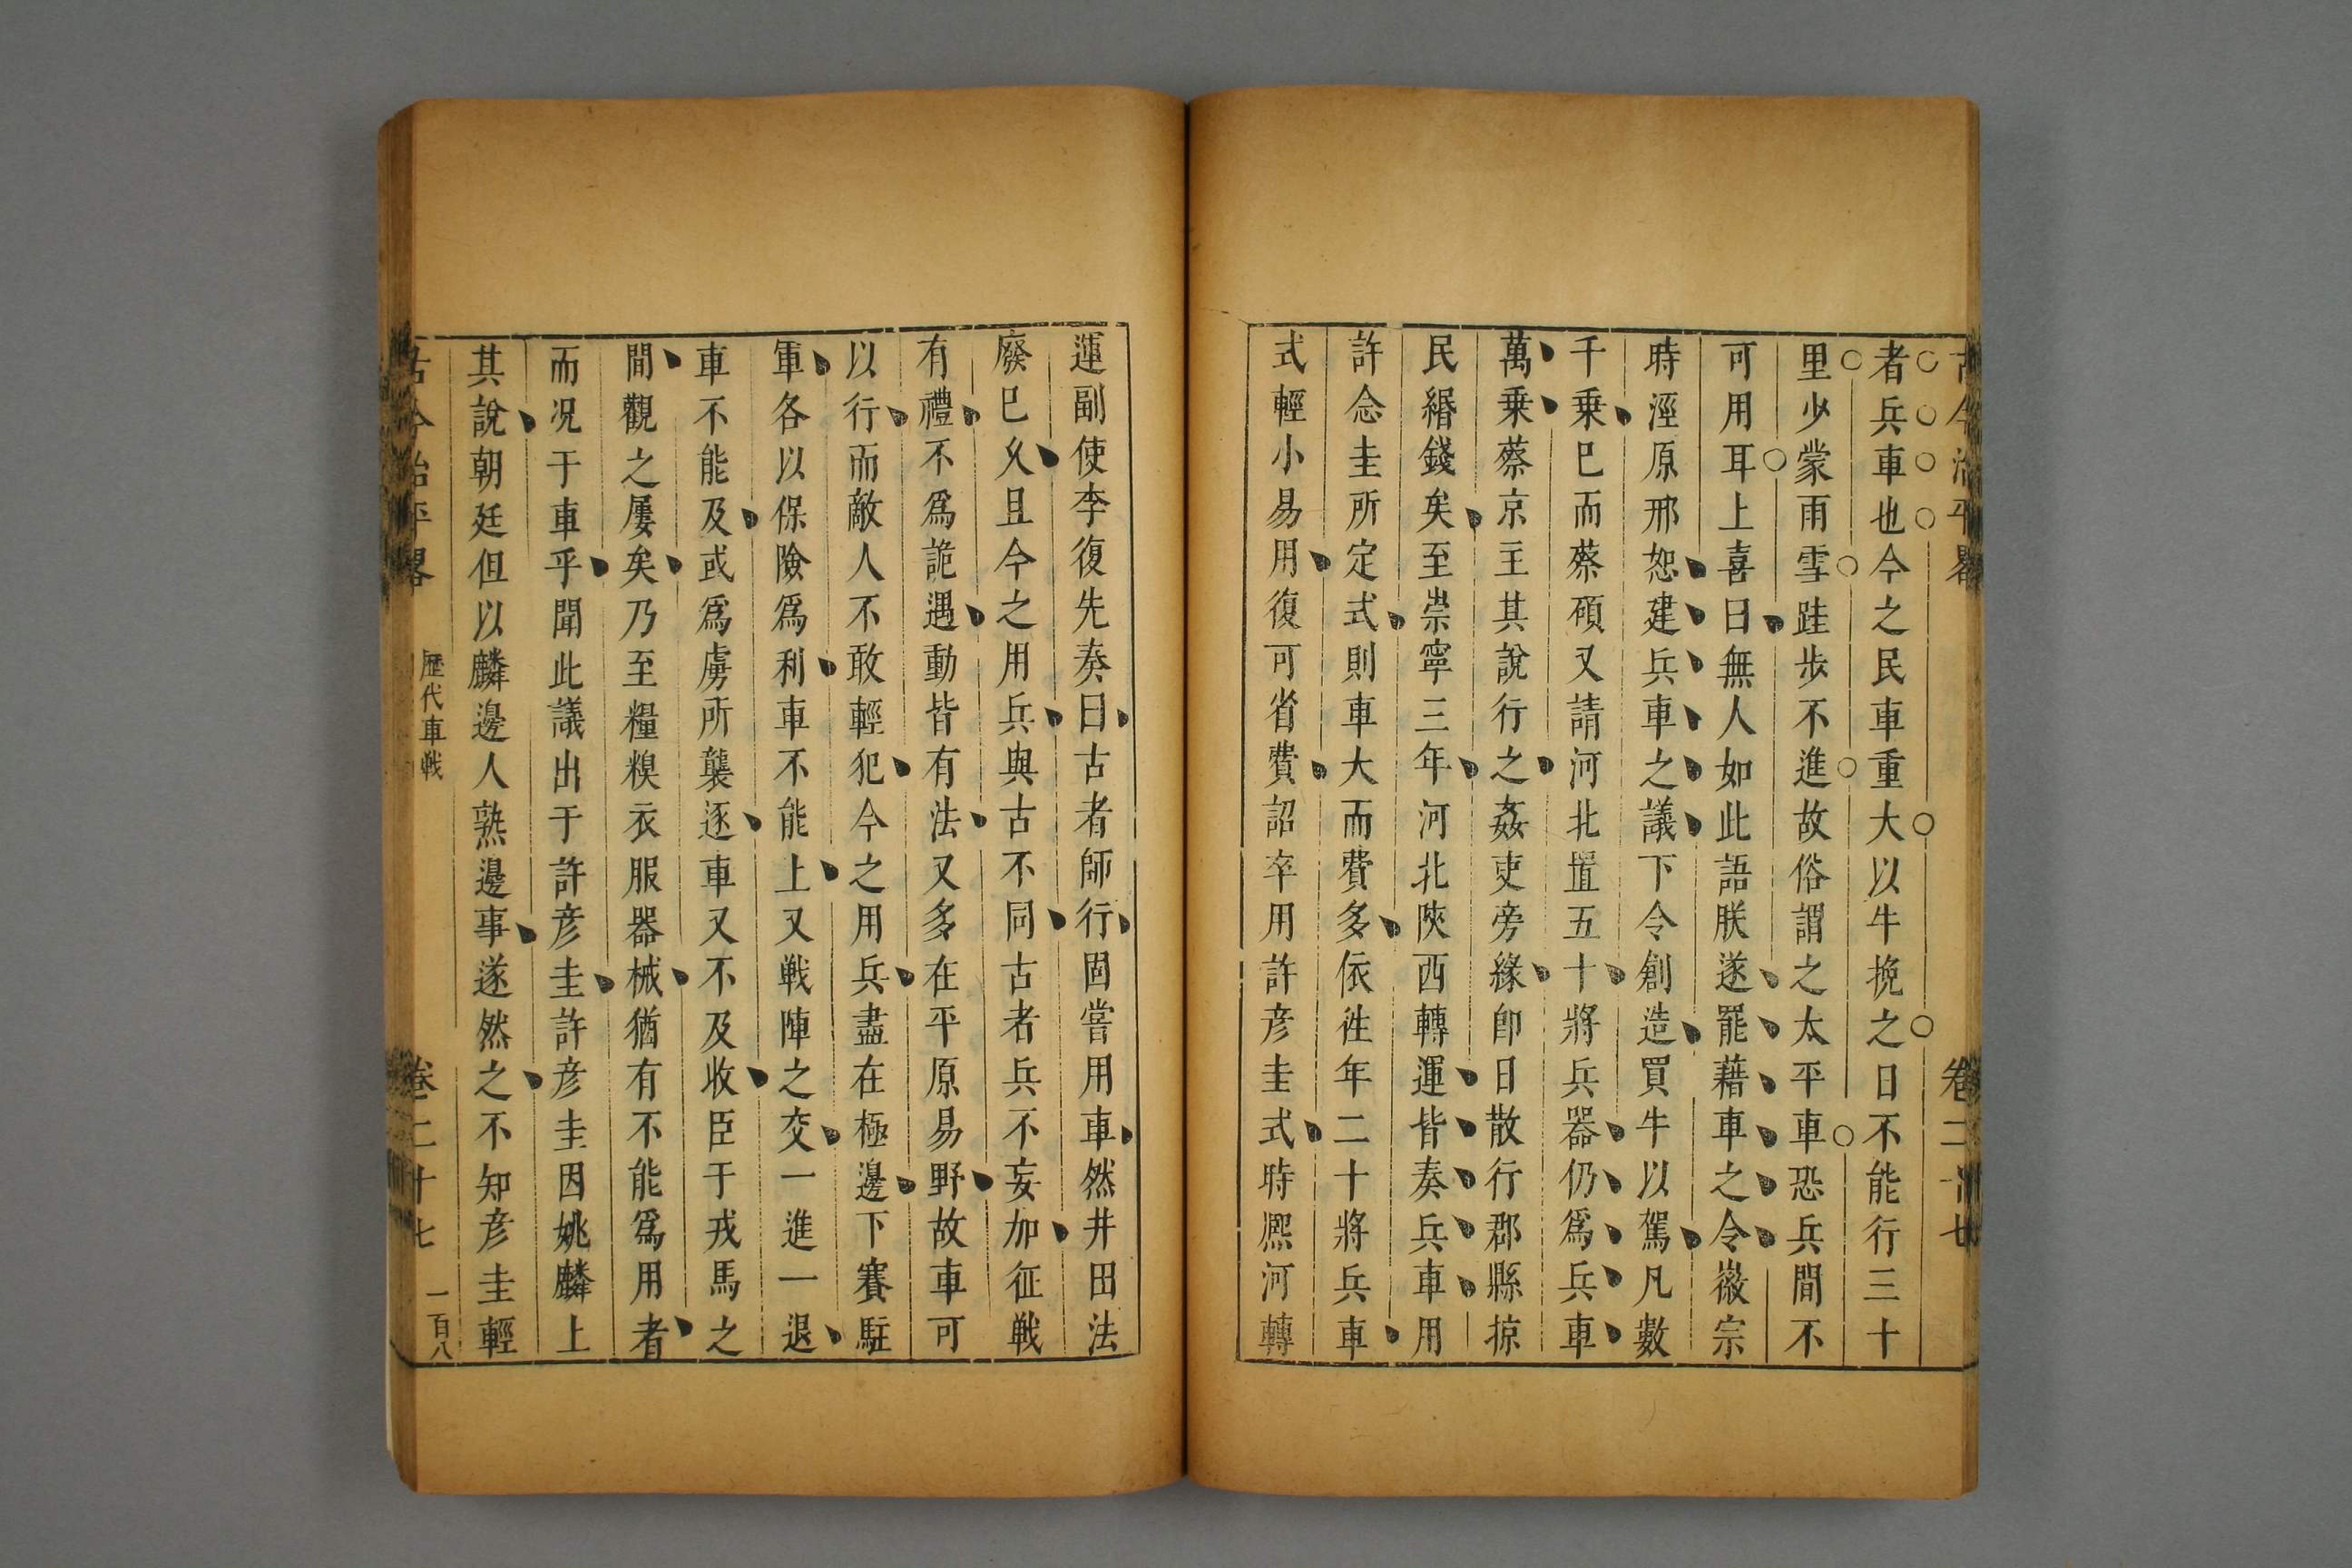 古今治平畧
卷二十七
者兵車也今之民車重大以牛挽之日不能行三十
里少蒙雨雪跬步不進故俗謂之太平車恐兵間不
可用耳上喜曰無人如此語朕遂罷藉車之令徽宗
時涇原邢恕建兵車之議下令創造買牛以駕凡數
千乗巳而蔡碩又請河北置五十將兵器仍爲兵車
萬乗蔡京主其說行之姦吏旁緣卽日散行郡縣掠
民緡錢矣至崇寧三年河北陝西轉運皆奏兵車用
許念圭所定式則車大而費多依徃年二十將兵車
式輕小易用復可省費詔卒用許彦圭式時熈河轉
運副使李復先奏曰古者師行固嘗用車然井田法
廢巳乆且今之用兵與古不同古者兵不妄加征戦
有禮不爲詭遇動皆有法又多在平原易野故車可
以行而敵人不敢輕犯今之用兵盡在極邊下寨駐
軍各以保險爲利車不能上又戦陣之交一進一退
車不能及或爲虜所襲逐車又不及收臣于戎馬之
間觀之屢矣乃至糧糗衣服器械猶有不能爲用者
而况于車乎聞此議出于許彦圭許彦圭因姚麟上
其說朝廷但以麟邊人熟邊事遂然之不知彦圭輕
古今治平畧
歷代車戦
卷二十七
一百八